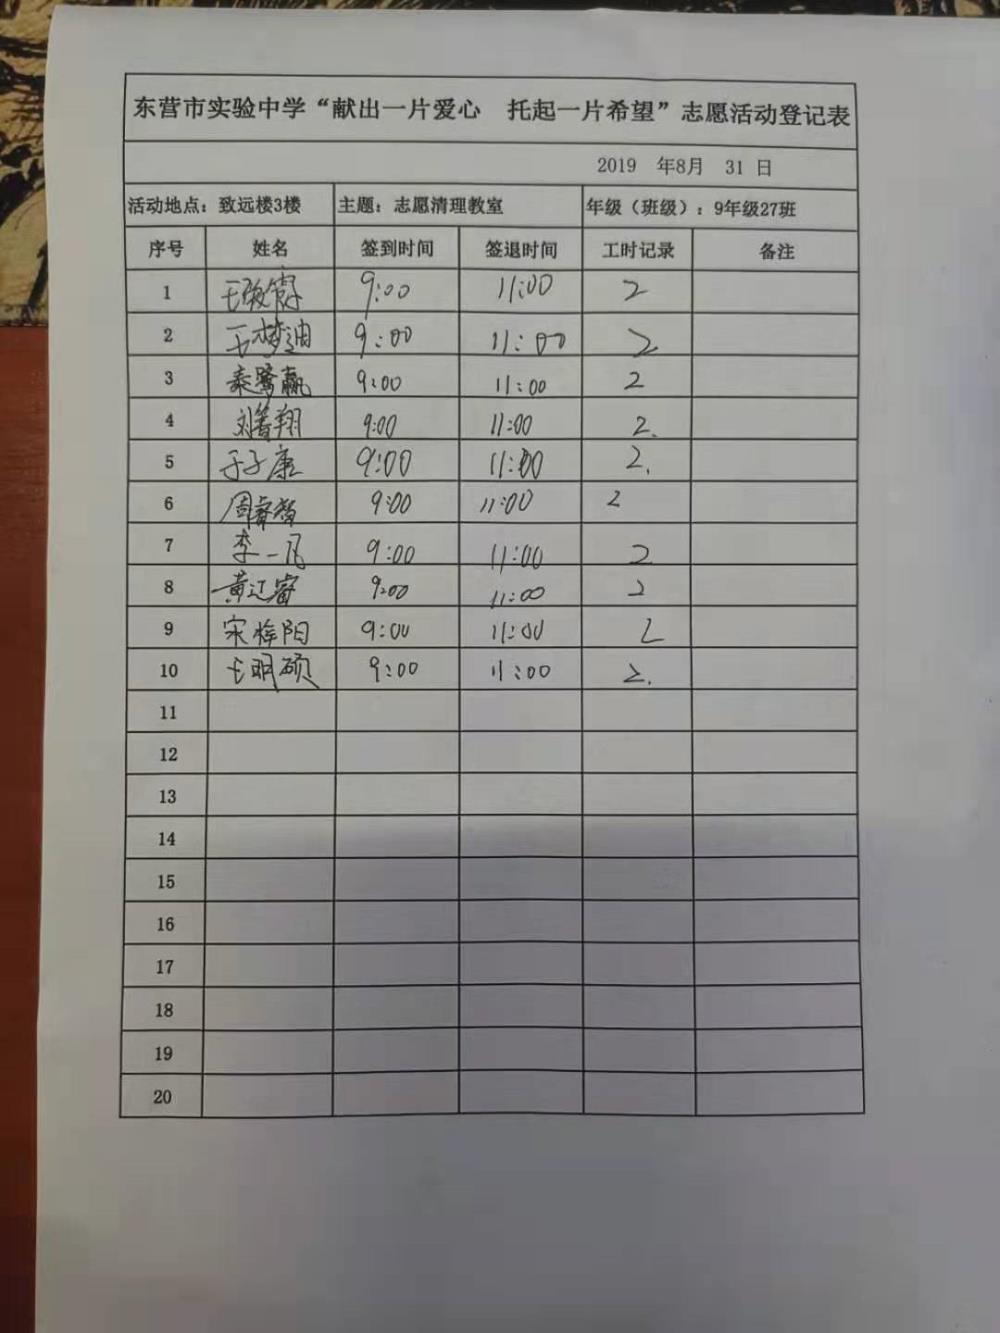 东营市实验中学“献出一片爱心 托起一片希望”志愿活动登记表
2019 年8月 31 日
活动地点：致远楼3楼 主题：志愿清理教室 年级（班级）：9年级27班
序号 姓名 签到时间 签退时间 工时记录 备注
1 9:00 11:00 2
2 王梦迪 9:00 11:00 2
3 秦鹭赢 9:00 11:00 2
4 翔 9:00 11:00 2.
5 于子康 9:00 11:00 2.
6 周睿智 9:00 11:00 2
7 李一凡 9:00 11:00 2
8 黄辽睿 9:00 11:00 2
9 宋梓阳 9:00 11:00 2
10 王明硕 9:00 11:00 2.
11
12
13
14
15
16
17
18
19
20